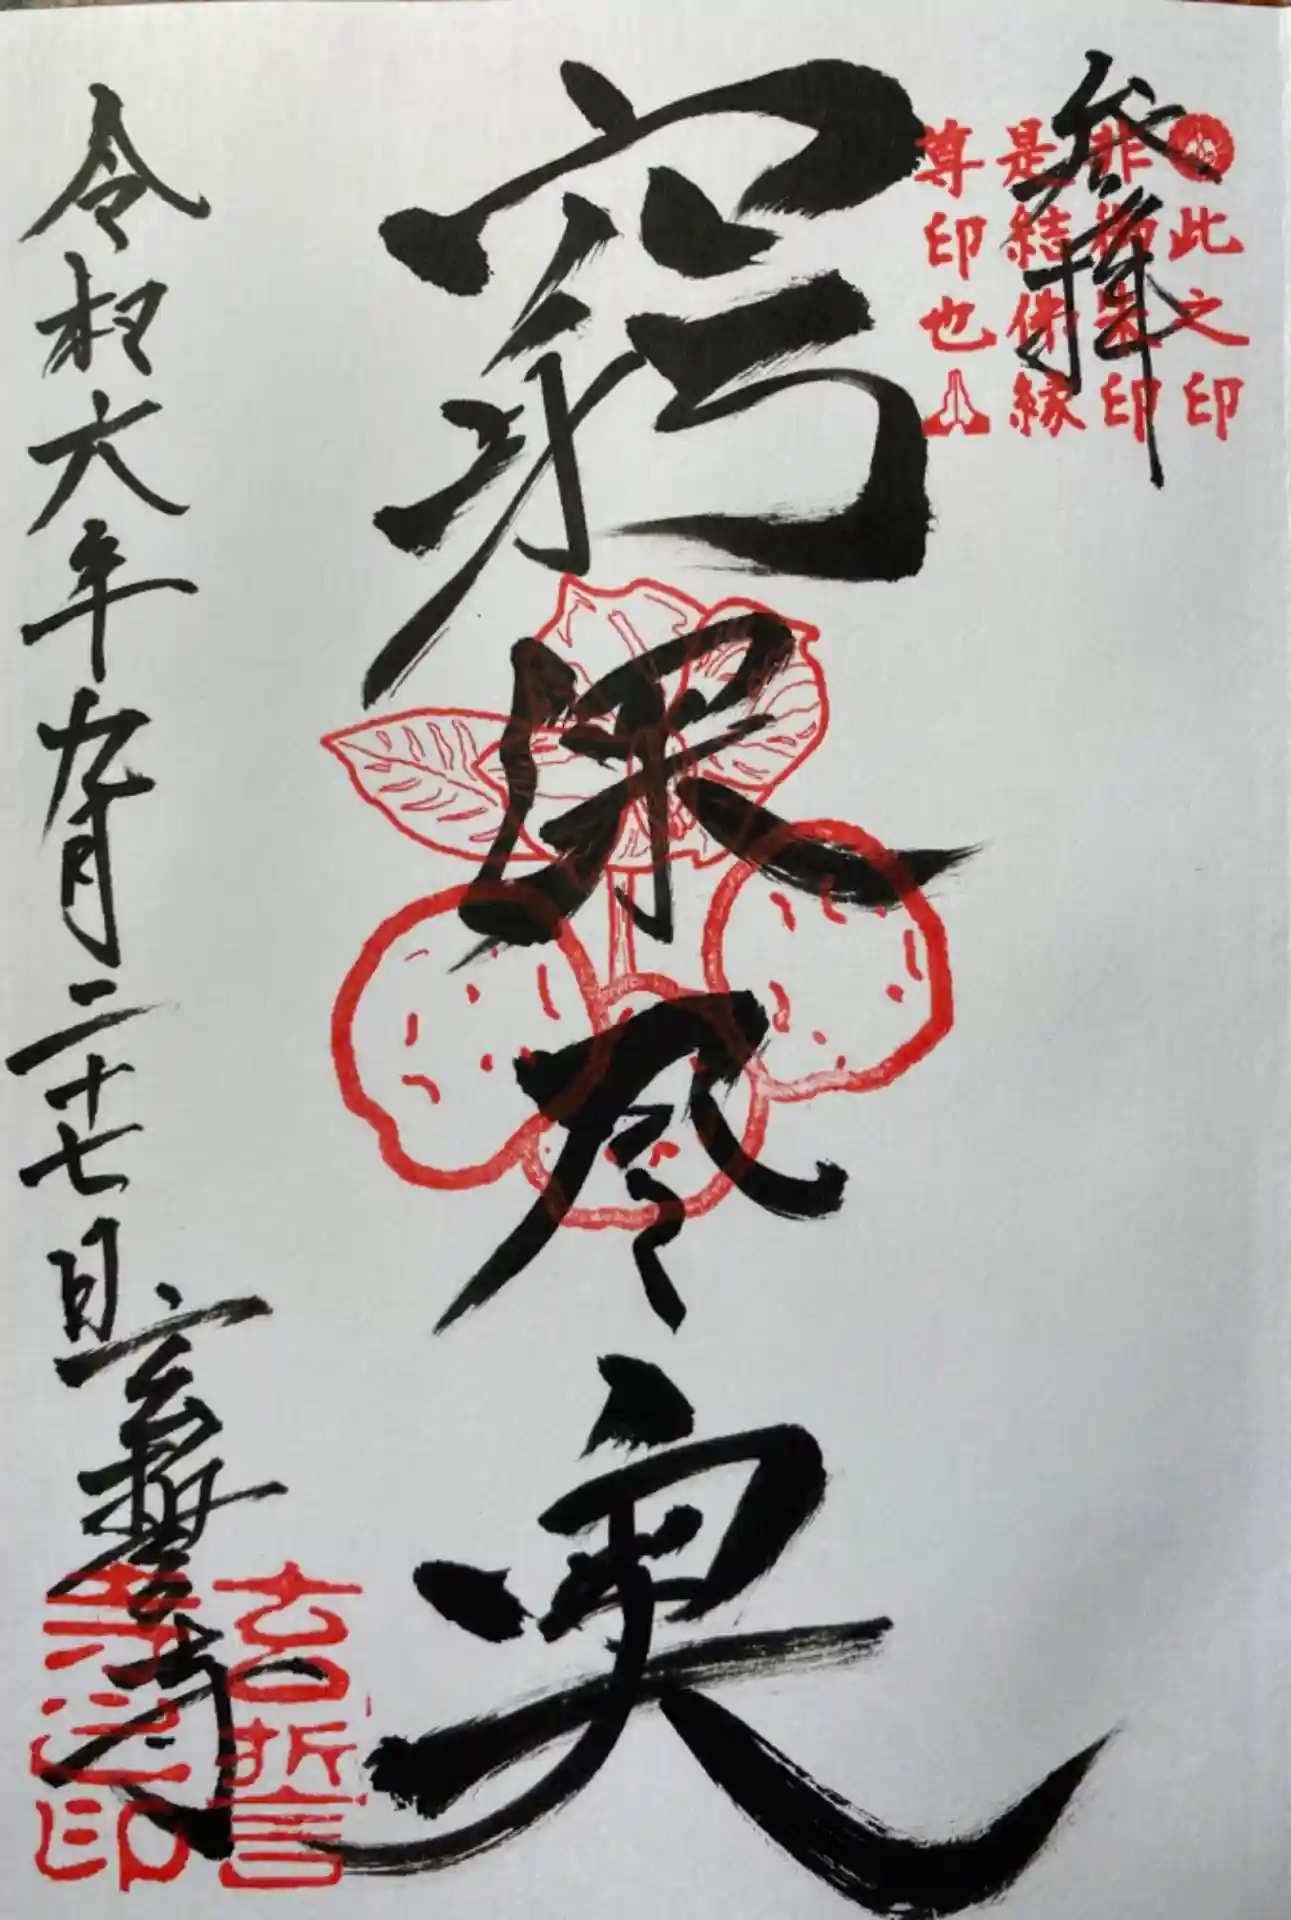 參拝
此之印
非御朱印
是結佛縁
尊印也
窮深尽奥
令和六年九月二十七日
玄誓寺
玄誓
寺之印